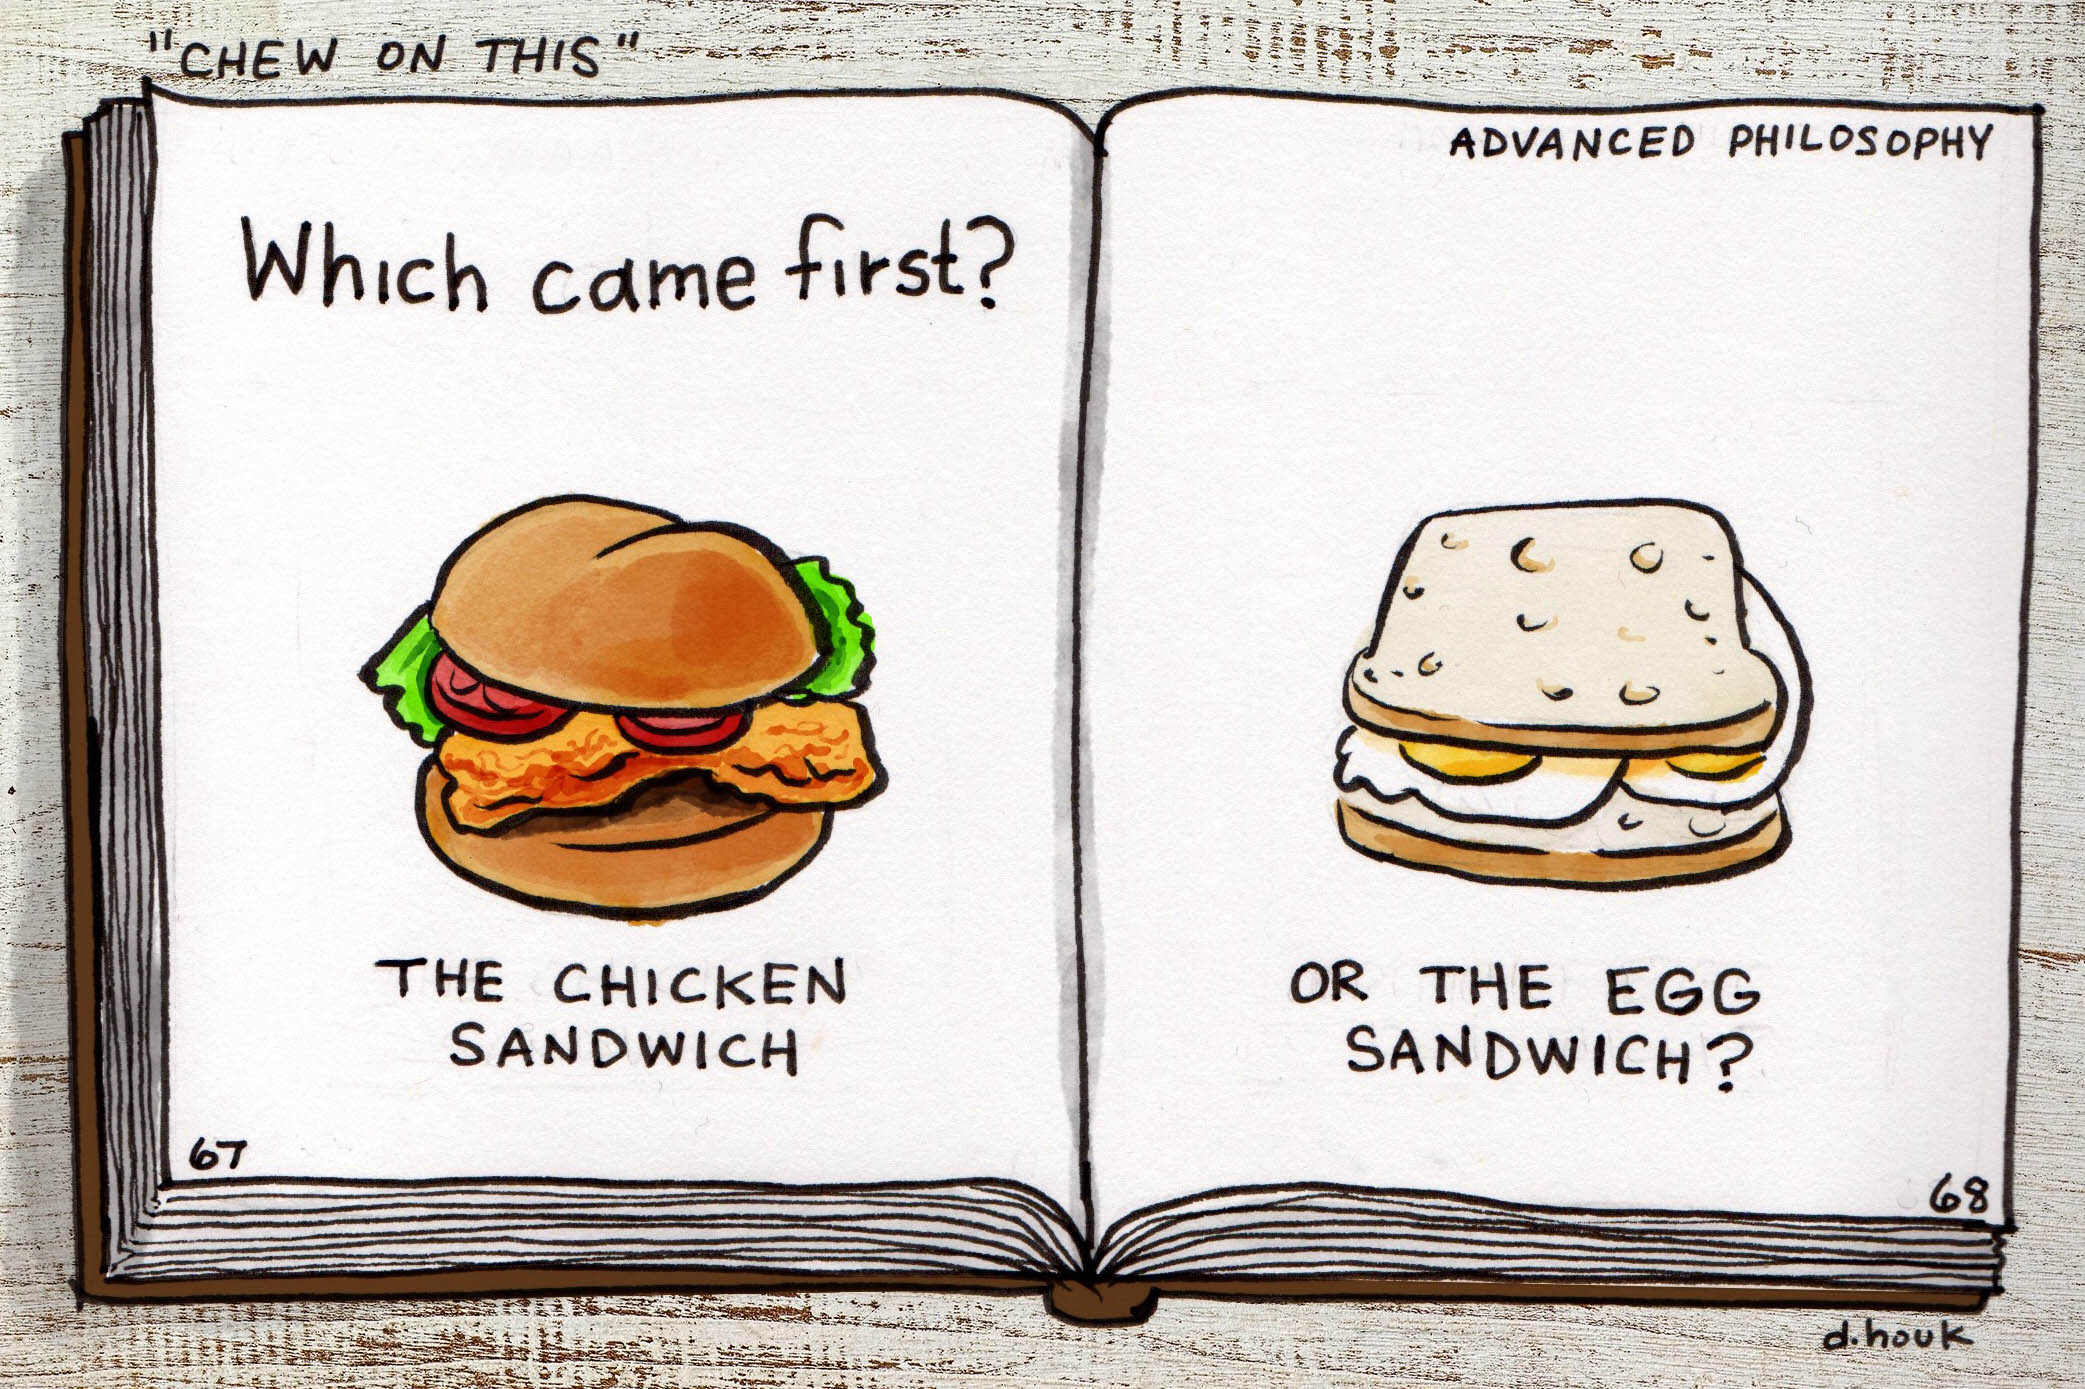 "CHEW ON THIS"
ADVANCED PHILOSOPHY
Which came first?
THE CHICKEN
SANDWICH
OR THE EGG
SANDWICH?
67
68
d.houk